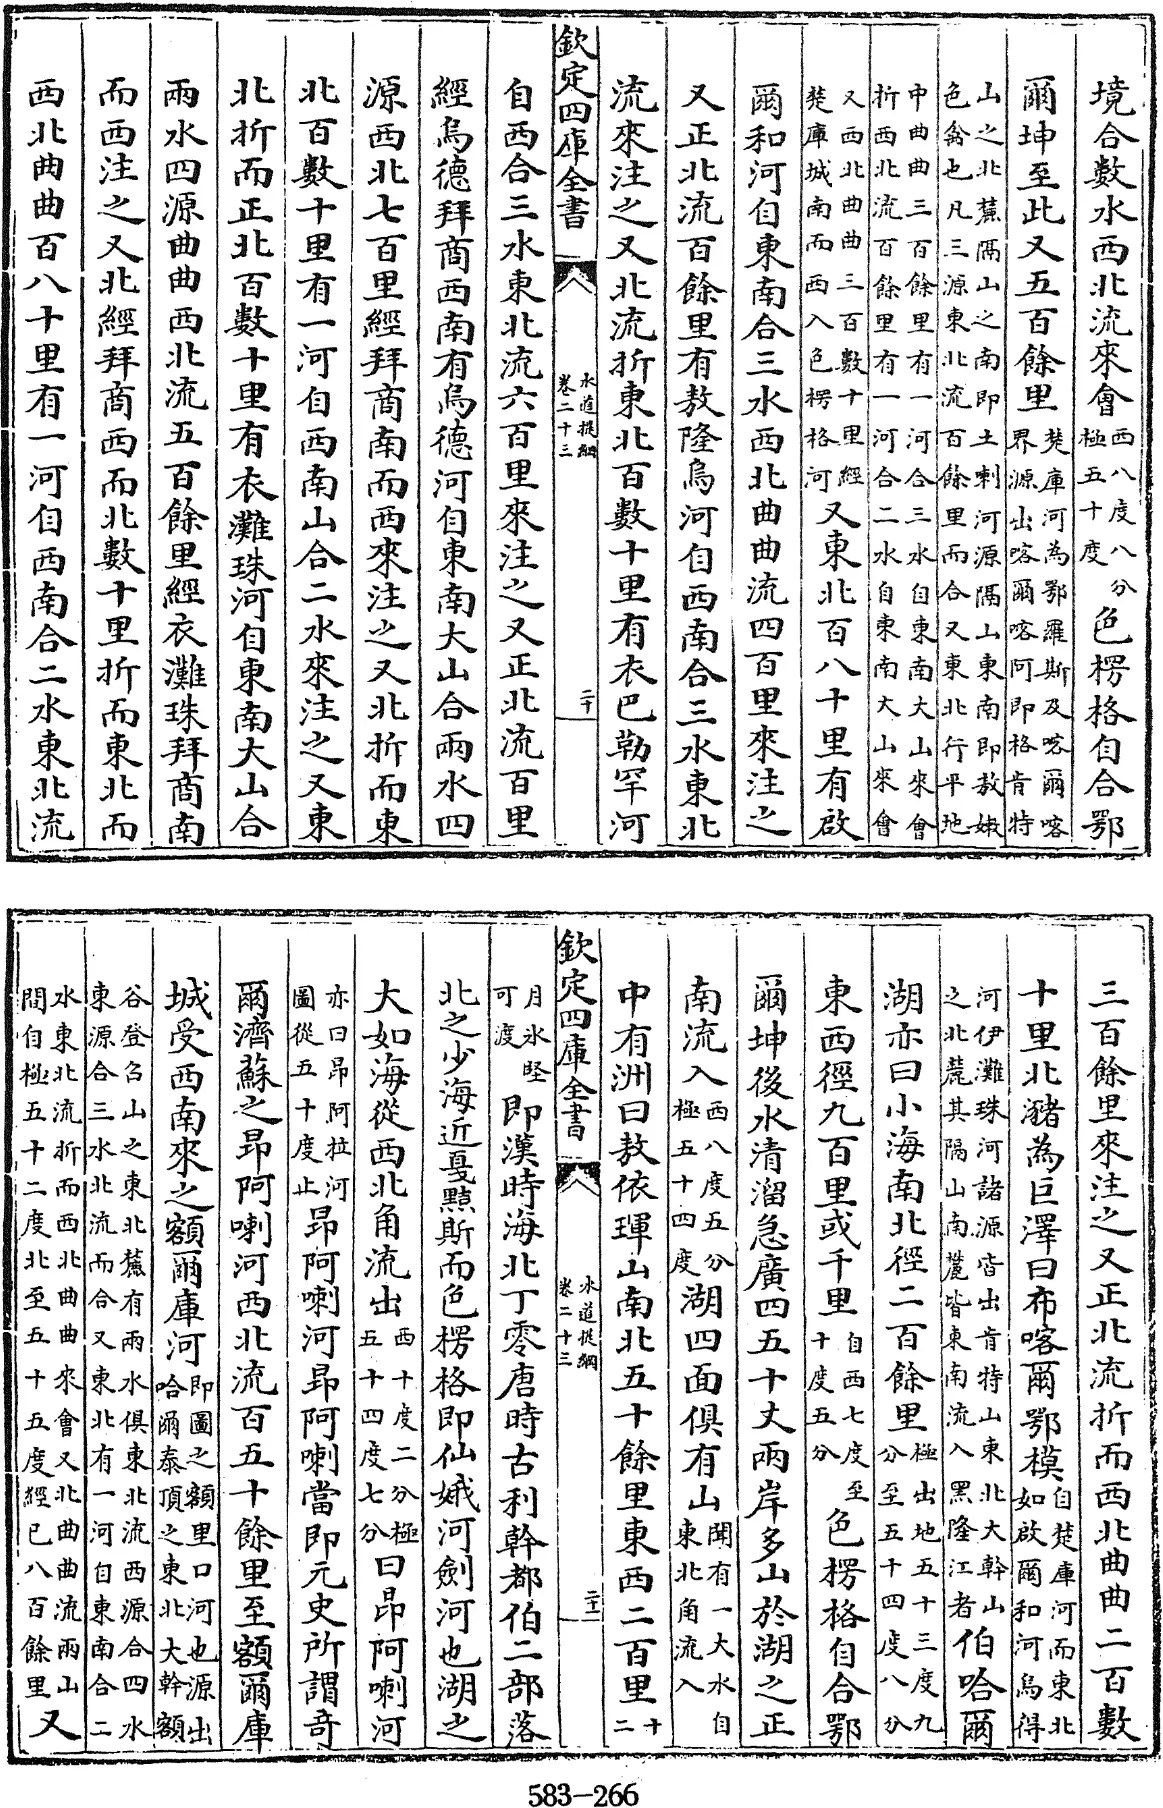 境合數水西北流來會西八度八分極五十度色楞格自合鄂
爾坤至此又五百餘里楚庫河為鄂羅斯及喀爾喀界源出喀爾喀阿即格肯特
山之北麓隔山之南即土喇河源隔山東南即敖嫩
色禽也凡三源東北流百餘里而合又東北行平地
中曲曲三百餘里有一河合三水自東南大山來會
折西北流百餘里有一河合二水自東南大山來會
又西北曲曲三百數十里經楚庫城南而西入色楞格河又東北百八十里有啟
爾和河自東南合三水西北曲曲流四百里來注之
又正北流百餘里有敖隆烏河自西南合三水東北
流來注之又北流折東北百數十里有衣巴勒罕河
欽定四庫全書
水道提綱
卷二十三
二十
自西合三水東北流六百里來注之又正北流百里
經烏德拜商西南有烏德河自東南大山合兩水四
源西北七百里經拜商南而西來注之又北折而東
北百數十里有一河自西南山合二水來注之又東
北折而正北百數十里有衣灘珠河自東南大山合
兩水四源曲曲西北流五百餘里經衣灘珠拜商南
而西注之又北經拜商西而北數十里折而東北而
西北曲曲百八十里有一河自西南合二水東北流
三百餘里來注之又正北流折而西北曲曲二百數
十里北瀦為巨澤曰布喀爾鄂模自楚庫河而東北如啟爾和河烏得
河伊灘珠河諸源皆出肯特山東北大幹山
之北麓其隔山南麓皆東南流入黑隆江者伯哈爾
湖亦曰小海南北徑二百餘里極出地五十三度九分至五十四度八分
東西徑九百里或千里自西七度至十度五分色楞格自合鄂
爾坤後水清溜急廣四五十丈兩岸多山於湖之正
南流入西八度五分極五十四度湖四面俱有山聞有一大水自東北角流入
中有洲曰敖依琿山南北五十餘里東西二百里十二
欽定四庫全書
水道提綱
卷二十三
二十一
月冰堅可渡即漢時海北丁零唐時古利幹都伯二部落
北之少海近戛黠斯而色楞格即仙娥河劍河也湖之
大如海從西北角流出西十度二分極五十四度七分曰昂阿喇河
亦曰昂阿拉河圖從五十度止昂阿喇河昂阿喇當即元史所謂奇
爾濟蘇之昂阿喇河西北流百五十餘里至額爾庫
城受西南來之額爾庫河即圖之額里口河也源出哈爾泰頂之東北大幹額
谷登台山之東北麓有兩水俱東北流西源合四水
東源合三水北流而合又東北有一河自東南合二
水東北流折而西北曲曲來會又北曲曲流兩山
間自極五十二度北至五十五度經已八百餘里又
583-266